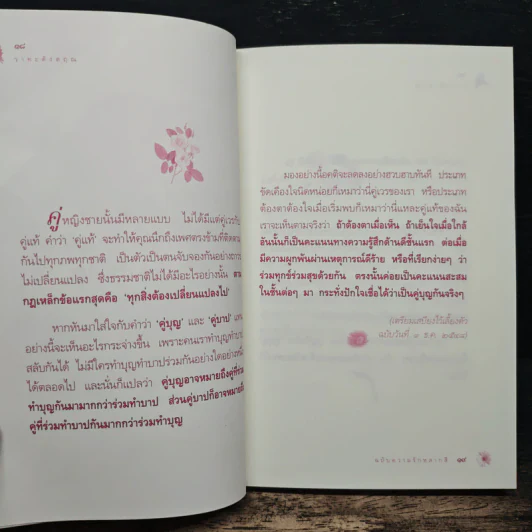 ๑๘
คู่หญิงชายนั้นมีหลายแบบ ไม่ได้มีแต่คู่เวรกับ
คู่แท้ คำว่า 'คู่แท้' จะทำให้คุณนึกถึงเพศตรงข้ามที่ติดตาม
กันไปทุกภพทุกชาติ เป็นตัวเป็นตนจับจองกันอย่างถาวร
ไม่เปลี่ยนแปลง ซึ่งธรรมชาติไม่ได้มีอะไรอย่างนั้น
กฎเหล็กข้อแรกสุดคือ 'ทุกสิ่งต้องเปลี่ยนแปลงไป'
หากหันมาใส่ใจกับคำว่า 'คู่บุญ' และ 'คู่บาป' แทน
อย่างนี้จะเห็นอะไรกระจ่างขึ้น เพราะคนเราทำบุญทำบาป
สลับกันได้ ไม่มีใครทำบุญทำบาปร่วมกันอย่างใดอย่างหนึ่ง
ได้ตลอดไป และนั่นก็แปลว่า คู่บุญอาจหมายถึงคู่ที่ร่วม
ทำบุญกันมามากกว่าร่วมทำบาป ส่วนคู่บาปก็อาจหมายถึง
คู่ที่ร่วมทำบาปกันมากกว่าร่วมทำบุญ
มองอย่างนี้อคติจะลดลงอย่างฮวบฮาบทันที ประเภท
ขัดเคืองใจนิดหน่อยก็เหมาว่านี่คู่เวรของเรา หรือประเภท
ต้องตาต้องใจเมื่อเริ่มพบก็เหมาว่านี่แหละคู่แท้ของฉัน
เราจะเห็นตามจริงว่า ถ้าต้องตาเมื่อเห็น ถ้าเย็นใจเมื่อใกล้
อันนั้นก็เป็นคะแนนทางความรู้สึกด้านดีขั้นแรก ต่อเมื่อ
มีความผูกพันผ่านเหตุการณ์ดีร้าย หรือที่เรียกง่ายๆ ว่า
ร่วมทุกข์ร่วมสุขด้วยกัน ตรงนั้นค่อยเป็นคะแนนสะสม
ในขั้นต่อๆ มา กระทั่งปักใจเชื่อได้ว่าเป็นคู่บุญกันจริงๆ
(เตรียมเสบียงไว้เลี้ยงตัว
๑๙